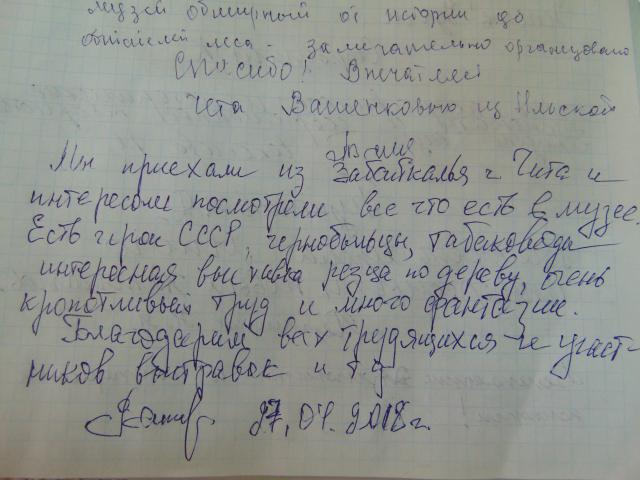 музей обширный от истории до
обителей леса. замечательно организовано
Спасибо! Впечатлей
Чета Вашенковью из Ильской
Мы приехали из Забайкалья г. Чита и
интересом посмотрели все что есть в музее.
Есть герои СССР, чернобыльцы, табаководы
интересная выставка резца по дереву, очень
кропотливый труд и много фантазии.
Благодарим всех трудящихся и участ-
ников выставак и т д
27.04.2018г.